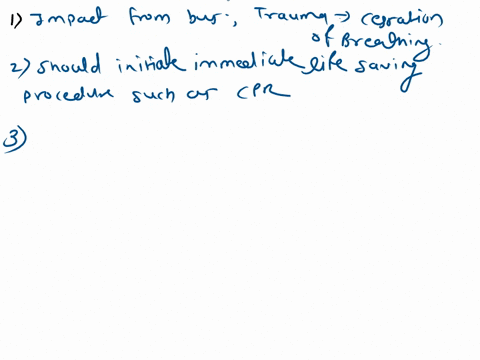 1) Impact from bus., Trauma → cessation
of Breathing.
2) should initiate immediate life saving
procedure such as CPR
3)